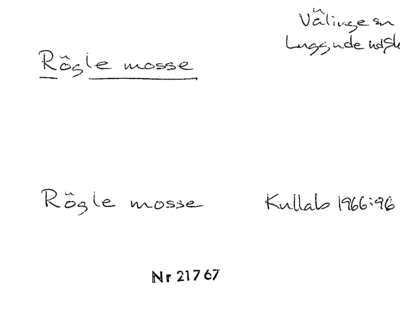 Välinge sn
Luggude hd Sk
Rögle mosse
Rögle mosse Kullab 1966:96
Nr 21767